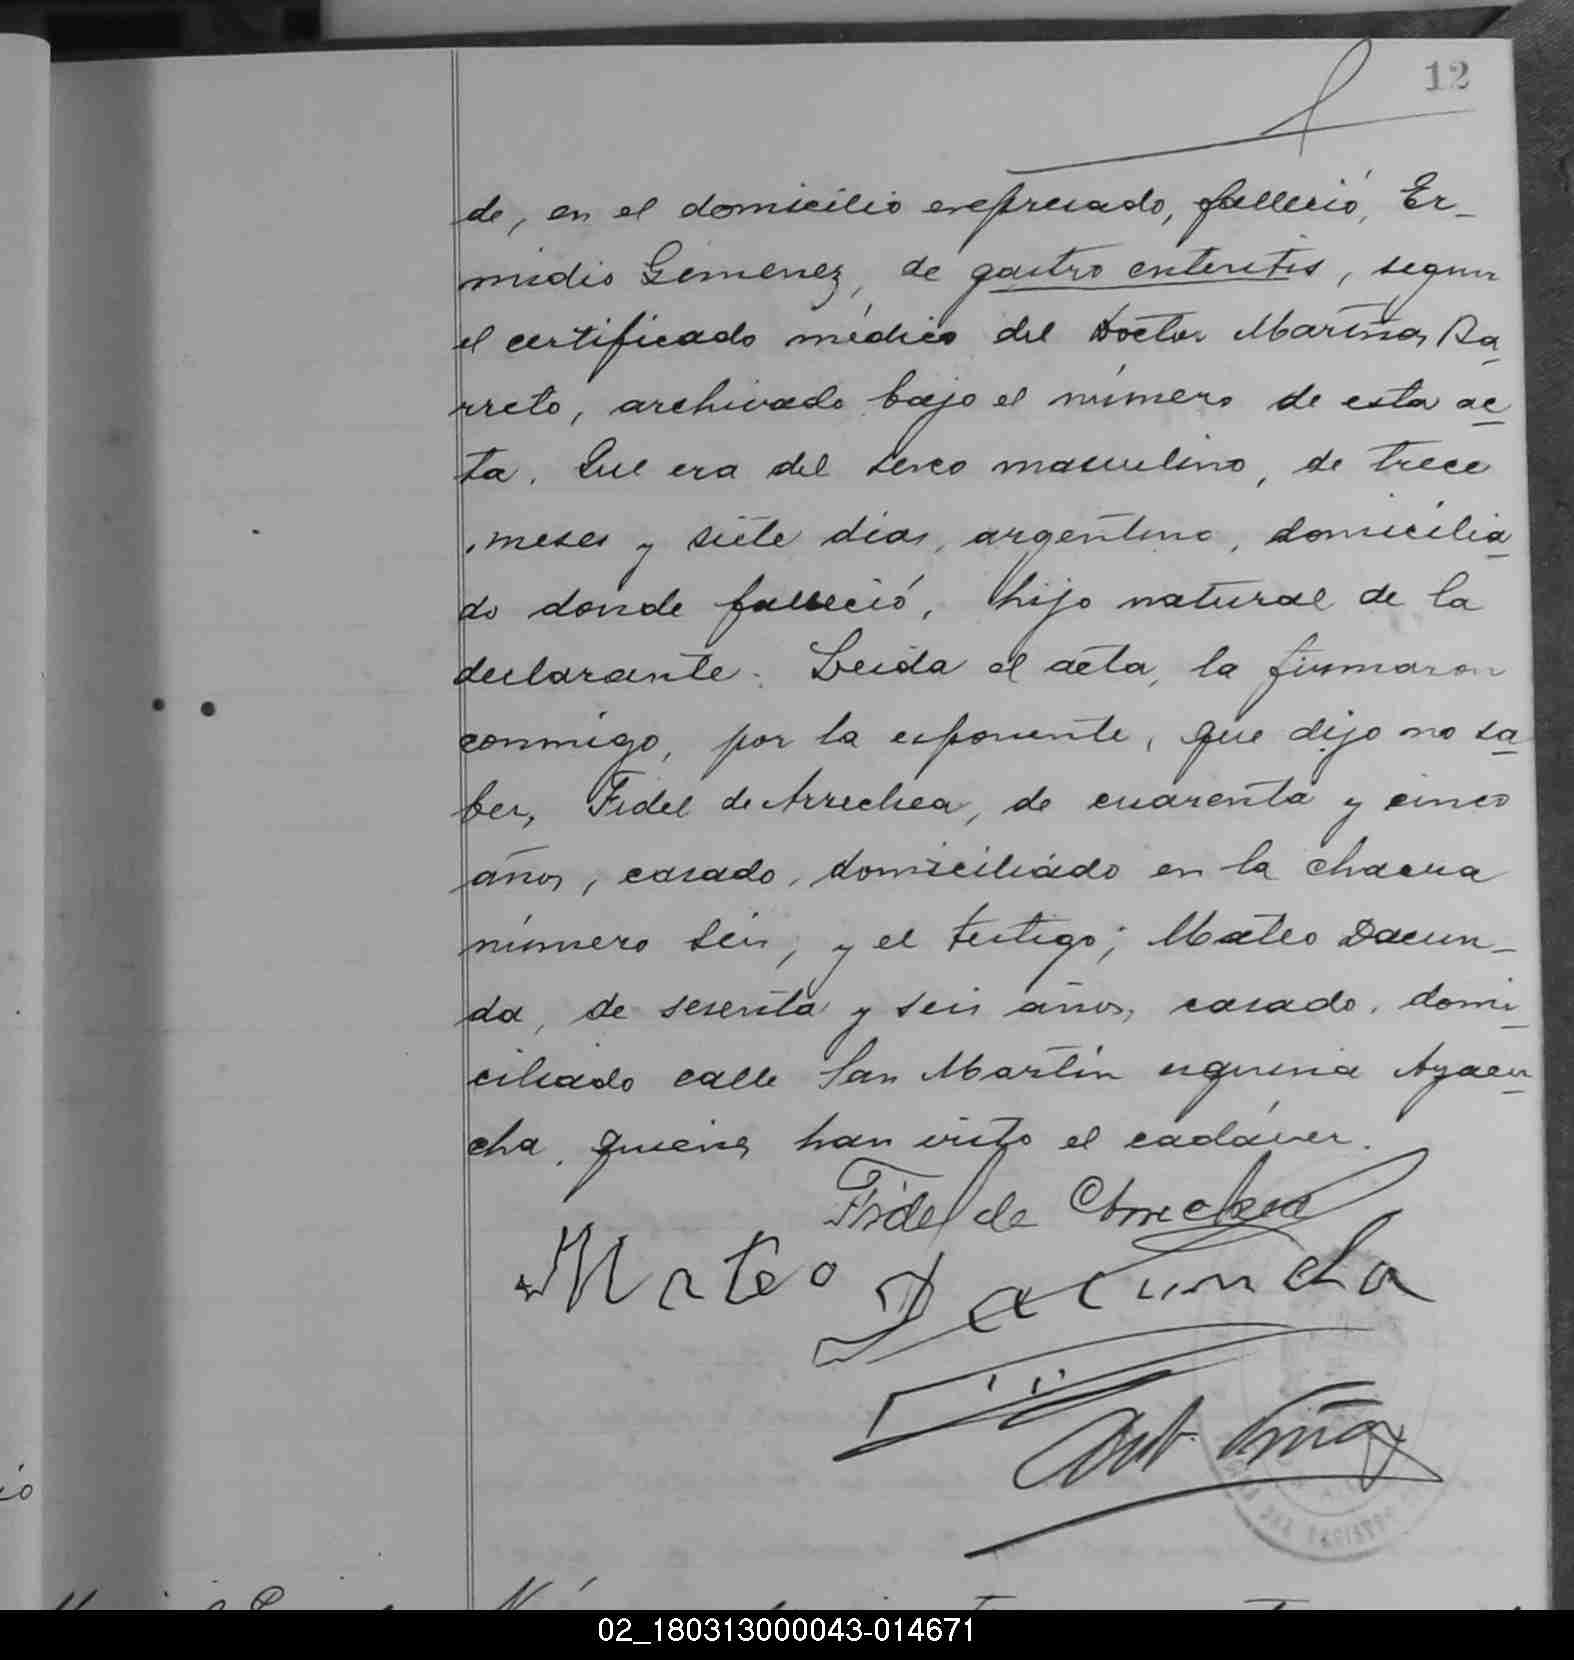 12
de, en el domicilio expresado, falleció, Er-
midio Gimenez, de gastro enteritis, segun
el certificado médico del Doctor Marina Ba
rreto, archivado bajo el número de esta ac
ta. Que era del sexo masculino, de trece
meses y siete dias, argentino, domicilia
do donde falleció, hijo natural de la
declarante. Leida el acta, la firmaron
conmigo, por la esponente, que dijo no sa
ber, Fidel de Arrechea, de cuarenta y cinco
años, casado, domiciliado en la chacra
número seis, y el testigo; Mateo Dacun-
da, de sesenta y seis años, casado, domi
ciliado calle San Martin esquina Ayacu
cha, quienes han visto el cadáver.
Fidel de Arrechea
Mateo Dacunda
02_180313000043-014671